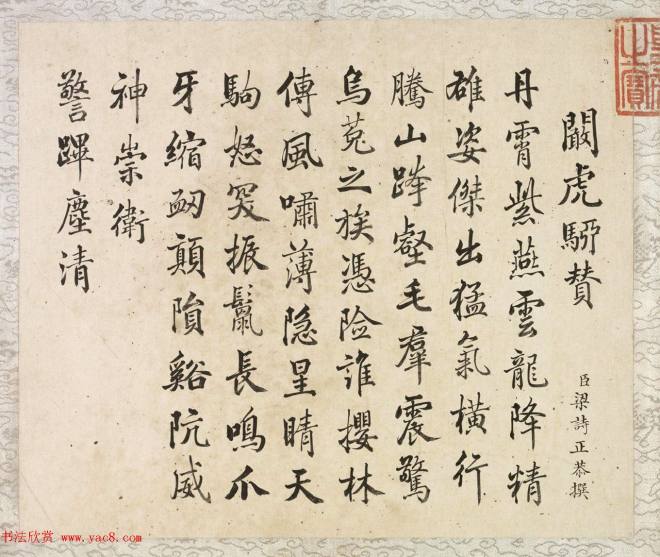 闞虎駵賛
臣梁詩正恭撰
丹霄紫燕雲龍降精
雄姿傑出猛氣橫行
騰山跨壑毛羣震驚
烏菟之族憑險誰攖林
傳風嘯薄隐星睛天
駒怒突振鬛長鳴爪
牙縮衂顛隕谿阬威
神崇衛
警蹕塵清
之寶
书法欣赏 www.yac8.com